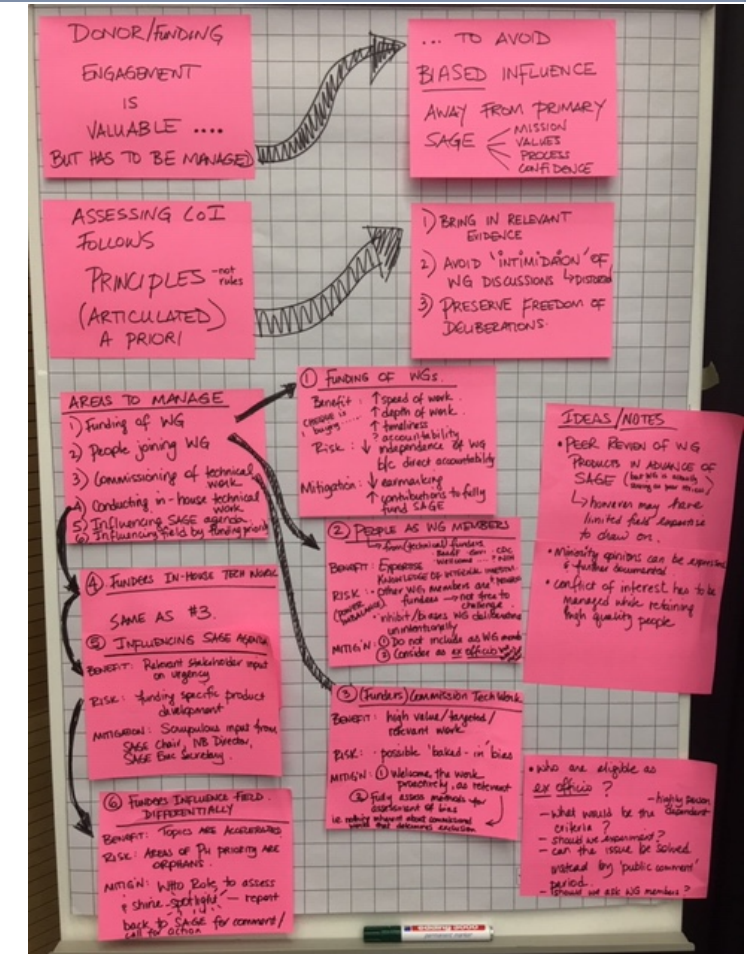 DONOR/FUNDING
ENGAGEMENT
IS
VALUABLE ....
BUT HAS TO BE MANAGED
... TO AVOID
BIASED INFLUENCE
AWAY FROM PRIMARY
SAGE
MISSION
VALUES
PROCESS
CONFIDENCE
ASSESSING COI
FOLLOWS
PRINCIPLES - not rules
(ARTICULATED)
A PRIORI
1) BRING IN RELEVANT
EVIDENCE
2) AVOID 'INTIMIDATION' OF
WG DISCUSSIONS
3) PRESERVE FREEDOM OF
DELIBERATIONS.
AREAS TO MANAGE
1) Funding of WG
2) People joining WG
3) Commissioning of technical
work
4) Conducting in-house technical
work
5) Influencing SAGE agenda
6) Influencing field by funding priority
① FUNDING OF WGs.
Benefit: ↑ speed of work.
↑ depth of work.
↑ timeliness
? accountability
Risk: ↓ independence of WG
b/c direct accountability
Mitigation: ↓ earmarking
↑ contributions to fully
fund SAGE
② PEOPLE AS WG MEMBERS
from (technical) funders
BENEFIT: EXPERTISE
KNOWLEDGE OF
RISK: - other WG members are
(POWER IMBALANCE)
funders → not free to
challenge.
· inhibit/biases WG deliberations
unintentionally
MITIG'N: ① Do not include as WG memb
② Consider as ex officio
③ (Funders) Commission Tech Work
BENEFIT: high value/targeted/
relevant work
RISK: - possible 'baked-in' bias
MITIG'N: ① Welcome, the work
proactively, as relevant
② Fully assess methods for
assessment of bias
i.e. nothing inherent about commissioned
works that determines exclusion
④ FUNDERS IN-HOUSE TECH WORK
SAME AS #3.
⑤ INFLUENCING SAGE AGENDA
BENEFIT: Relevant stakeholder input
on urgency
RISK: funding specific product
development
MITIGATION: Scrupulous input from
SAGE Chair, IVB Director,
SAGE Exec Secretary.
⑥ FUNDERS INFLUENCE FIELD
DIFFERENTIALLY
BENEFIT: TOPICS ARE ACCELERATED
RISK: AREAS OF PH PRIORITY ARE
ORPHANS.
MITIG'N: WHO Role to assess
& 'shine-spotlight' - report
back to SAGE for comment/
call for action
IDEAS/NOTES
• PEER REVIEW OF WG
PRODUCTS IN ADVANCE OF
SAGE (but WG is actually
↳ however may have
limited field expertise
to draw on.
• Minority opinions can be expressed
& further documented
• conflict of interest has to be
managed while retaining
high quality people
• who are eligible as
ex officio?
- highly person
dependent
- what would be the
criteria?
- should we experiment?
- can the issue be solved
instead by 'public comment'
period.
- should we ask WG members?
edding 3000
permanent marker